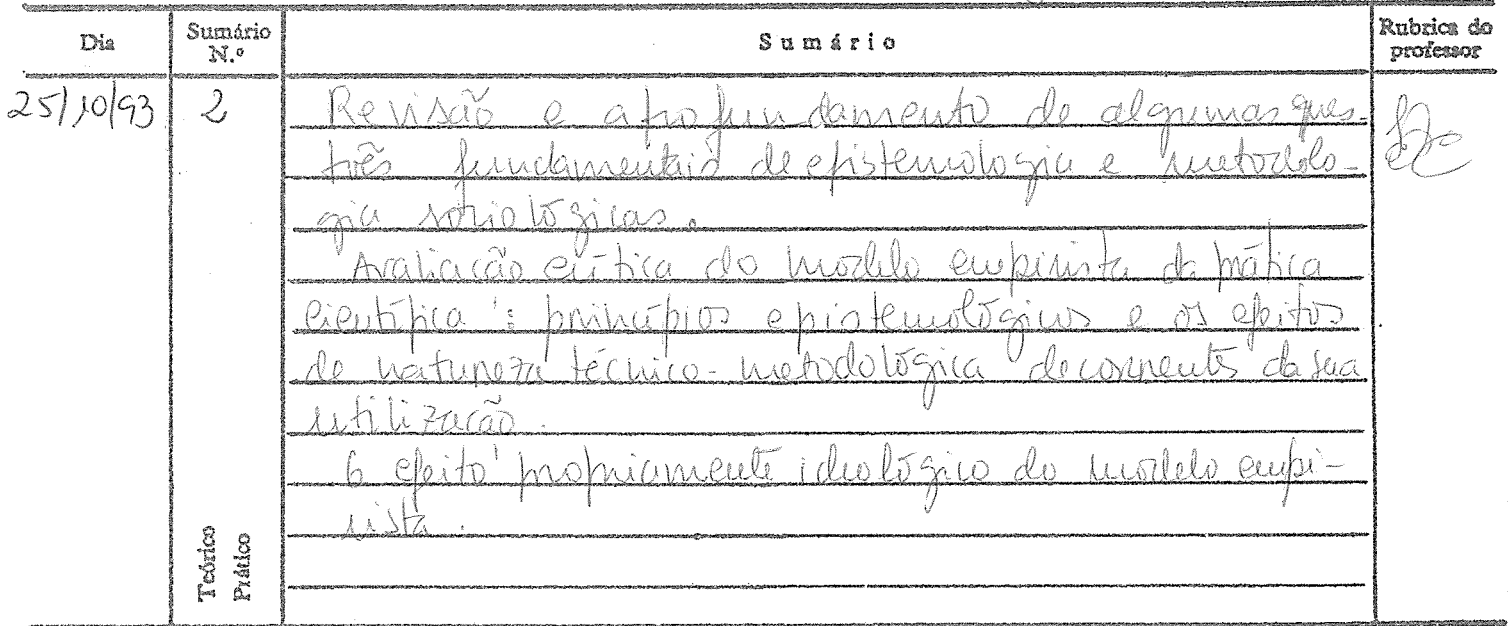 Dia
Sumário N.º
Sumário
Rubrica do professor
25/10/93
2
Revisão e aprofundamento de algumas ques-
tões fundamentais de epistemologia e metodolo-
gia sociológicas.
Avaliação crítica do modelo empirista da prática
científica: princípios epistemológicos e os efeitos
de natureza técnico-metodológica decorrentes da sua
utilização.
O efeito propriamente ideológico do modelo empi-
rista.
Teórico
Prático